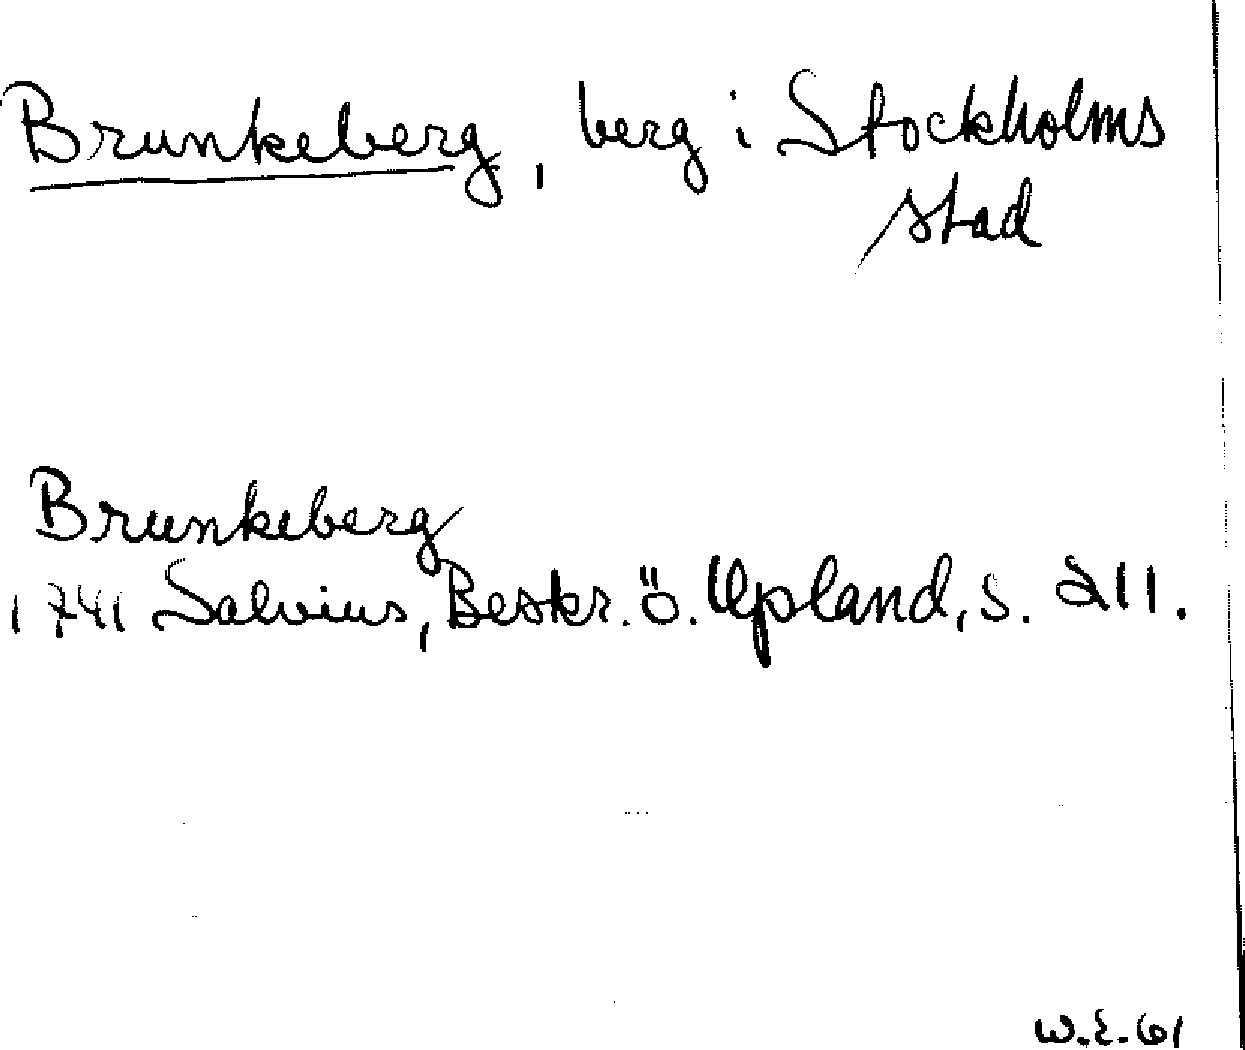 Brunkeberg, berg i Stockholms
stad
Brunkeberg
1741 Salvius, Beskr. ö. Upland, s. 211.
W.E. 61